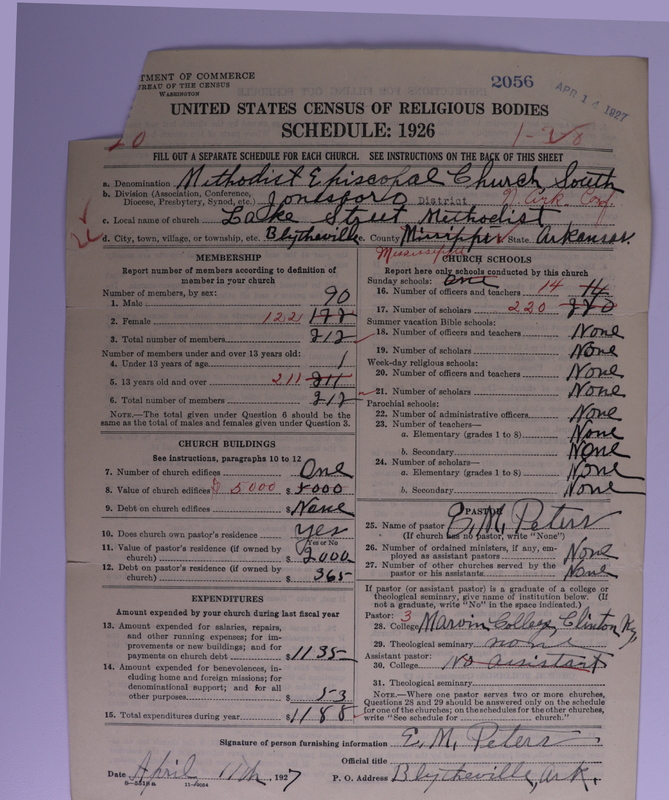 TMENT OF COMMERCE
REAU OF THE CENSUS
WASHINGTON
2056
APR 14 1927
UNITED STATES CENSUS OF RELIGIOUS BODIES
SCHEDULE: 1926
FILL OUT A SEPARATE SCHEDULE FOR EACH CHURCH. SEE INSTRUCTIONS ON THE BACK OF THIS SHEET
a. Denomination Methodist Episcopal Church, South
b. Division (Association, Conference, Diocese, Presbytery, Synod, etc.) Jonesboro District N. Ark. Conf.
c. Local name of church Lake Street Methodist
d. City, town, village, or township, etc. Blytheville County Missippi State Arkansas.
Mississippi
MEMBERSHIP
Report number of members according to definition of
member in your church
Number of members, by sex:
1. Male 90
2. Female 122 122
3. Total number of members 212
Number of members under and over 13 years old:
4. Under 13 years of age 1
5. 13 years old and over 211 211
6. Total number of members 212
NOTE.—The total given under Question 6 should be the
same as the total of males and females given under Question 3.
CHURCH BUILDINGS
See instructions, paragraphs 10 to 12
7. Number of church edifices One
8. Value of church edifices $ 5000 $ 5000
9. Debt on church edifices $ None
10. Does church own pastor's residence Yes
Yes or No
11. Value of pastor's residence (if owned by
church) $ 2000
12. Debt on pastor's residence (if owned by
church) $ 365
EXPENDITURES
Amount expended by your church during last fiscal year
13. Amount expended for salaries, repairs,
and other running expenses; for im-
provements or new buildings; and for
payments on church debt $ 1135
14. Amount expended for benevolences, in-
cluding home and foreign missions; for
denominational support; and for all
other purposes $ 53
15. Total expenditures during year $ 1188
CHURCH SCHOOLS
Report here only schools conducted by this church
Sunday schools: One
16. Number of officers and teachers 14 14
17. Number of scholars 220 220
Summer vacation Bible schools:
18. Number of officers and teachers None
19. Number of scholars None
Week-day religious schools:
20. Number of officers and teachers None
21. Number of scholars None
Parochial schools:
22. Number of administrative officers None
23. Number of teachers—
a. Elementary (grades 1 to 8) None
b. Secondary None
24. Number of scholars—
a. Elementary (grades 1 to 8) None
b. Secondary None
PASTOR
25. Name of pastor E. M. Peters
(If church has no pastor, write "None")
26. Number of ordained ministers, if any, em-
ployed as assistant pastors None
27. Number of other churches served by the
pastor or his assistants None
If pastor (or assistant pastor) is a graduate of a college or
theological seminary, give name of institution below. (If
not a graduate, write "No" in the space indicated.)
Pastor: 3
28. College Marvin College, Clinton Ky,
29. Theological seminary none
Assistant pastor:
30. College No assistant
31. Theological seminary
NOTE.—Where one pastor serves two or more churches,
Questions 28 and 29 should be answered only on the schedule
for one of the churches; on the schedules for the other churches,
write "See schedule for church."
Signature of person furnishing information E. M. Peters
Official title
Date April 11th, 1927 P. O. Address Blytheville, Ark.